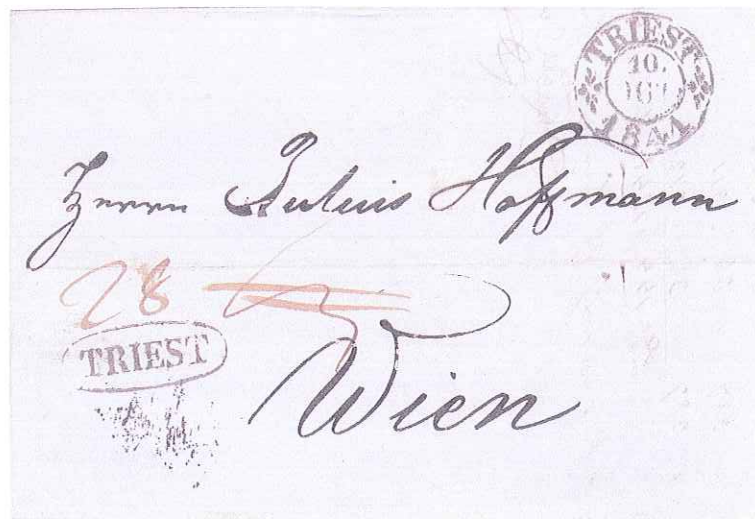 TRIEST
10.
1841
Herrn Julius Hoffmann
28
TRIEST
Wien